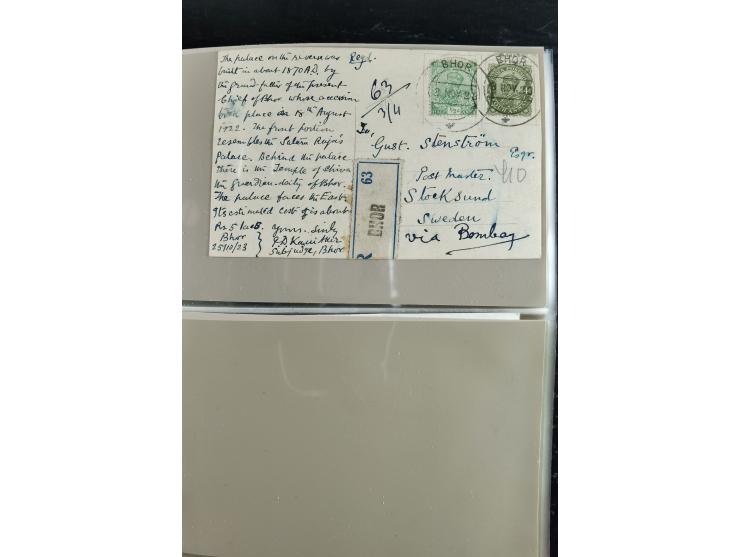 The palace on the reverse was
built in about 1870 A.D. by
the grand father of the present
Chief of Bhor whose accession
took place on 18th August
1922. The front portion
resembles the Satara Raja's
Palace. Behind the palace
there is the Temple of Shiva
the guardian-deity of Bhor.
The palace faces the East
Its estimated cost is about
Rs 5 lacs. Yours Sinly
Bhor
25/10/23
Subjudge, Bhor
Regd.
63
3/4
To,
Gust. Stenström Esqr.
Post Master.
Stocksund
Sweden
via Bombay
BHOR
BHOR
R BHOR 63